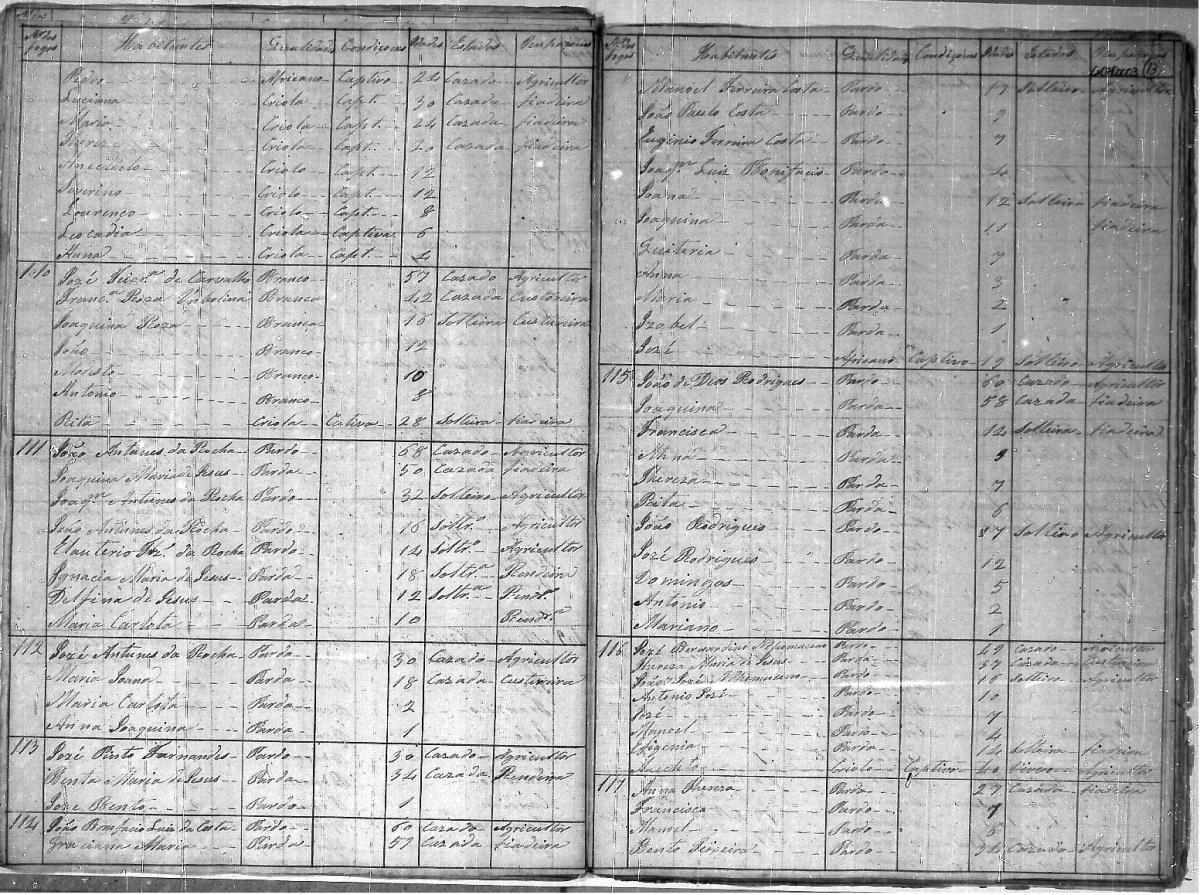 N.os dos fogos Habitantes Qualidades Condiçoens Idades Estados Ocupaçoens
Pedro Africano Captivo 22 Cazado Agricultor
Luciana Criola Capt. 30 Cazada fiadeira
Maria Criola Capt. 24 Cazada fiadeira
Thereza Criola Capt. 20 Cazada fiadeira
Anecleto Criolo Capt. 12
Severino Criolo Capt. 12
Lourenço Criolo Capt. 8
Leocadia Criola Captiva 6
Anna Criola Capt. 4
110 Jozé de Carvalho Branco 57 Cazado Agricultor
Franc.ca Roza Branca 42 Cazada Custureira
Joaquina Roza Branca 16 Solteira Custureira
João Branco 12
Modesto Branco 10
Antonio Branco 8
Rita Criola Cativa 28 Solteira fiadeira
111 João Antunes da Rocha Pardo 68 Cazado Agricultor
Joaquina Maria de Jesus Parda 50 Cazada fiadeira
Joaq.m Antunes da Rocha Pardo 32 Solteiro Agricultor
João Antunes da Rocha Pardo 16 Soltr.o Agricultor
Elauterio da Rocha Pardo 14 Soltr.o Agricultor
Ignacia Maria de Jesus Parda 18 Soltr.a Rendeira
Delfina de Jesus Parda 12 Soltr.a Rendr.a
Maria Carlota Parda 10 Rendr.a
112 Jozé Antunes da Rocha Pardo 30 Cazado Agricultor
Maria Joana Parda 18 Cazada Custureira
Maria Carlota Parda 2
Anna Joaquina Parda 1
113 Jozé Bento Farnandes Pardo 30 Cazado Agricultor
Benta Maria de Jesus Parda 34 Cazada Rendeira
Jozé Bento Pardo 1
114 João Bonifacio Luis da Costa Pardo 60 Cazado Agricultor
Graciana Maria Parda 57 Cazada fiadeira
N.os dos fogos Habitantes Qualidades Condiçoens Idades Estados Ocupaçoens
13
Manoel Ferreira Costa Pardo 17 Solteiro Agricultor
João Paulo Costa Pardo 9
Eugenio Ferreira Costa Pardo 7
Joaq.m Luiz Bonifacio Pardo 4
Joana Parda 12 Solteira fiadeira
Joaquina Parda 11 fiadeira
Quiteria Parda 7
Anna Parda 3
Maria Parda 2
Izabel Parda 1
Jozé Africano Captivo 19 Solteiro Agricultor
115 João de Deos Rodrigues Pardo 60 Cazado Agricultor
Joaquina Parda 58 Cazada fiadeira
Francisca Parda 14 Solteira fiadeira
Anna Parda 9
Thereza Parda 7
Rita Parda 6
João Rodrigues Pardo 37 Soltiro Agricultor
Jozé Rodrigues Pardo 12
Domingos Pardo 5
Antonio Pardo 2
Mariano Pardo 1
116 Jozé Bernardino Nepomuceno Pardo 49 Cazado Agricultor
Thereza Maria de Jesus Parda 37 Cazada Custureira
João Jozé Nepomuceno Pardo 16 Solteiro Agricultor
Antonio Jozé Pardo 10
Jozé Pardo 7
Manoel Pardo 4
Efigenia Parda 14 Solteira fiadeira
Criolo Captivo 40 Agricultor
117 Anna Thereza Parda 27 Cazada fiadeira
Francisca Parda 7
Manoel Pardo 6
Bento Teixeira Pardo 34 Cazado Agricultor